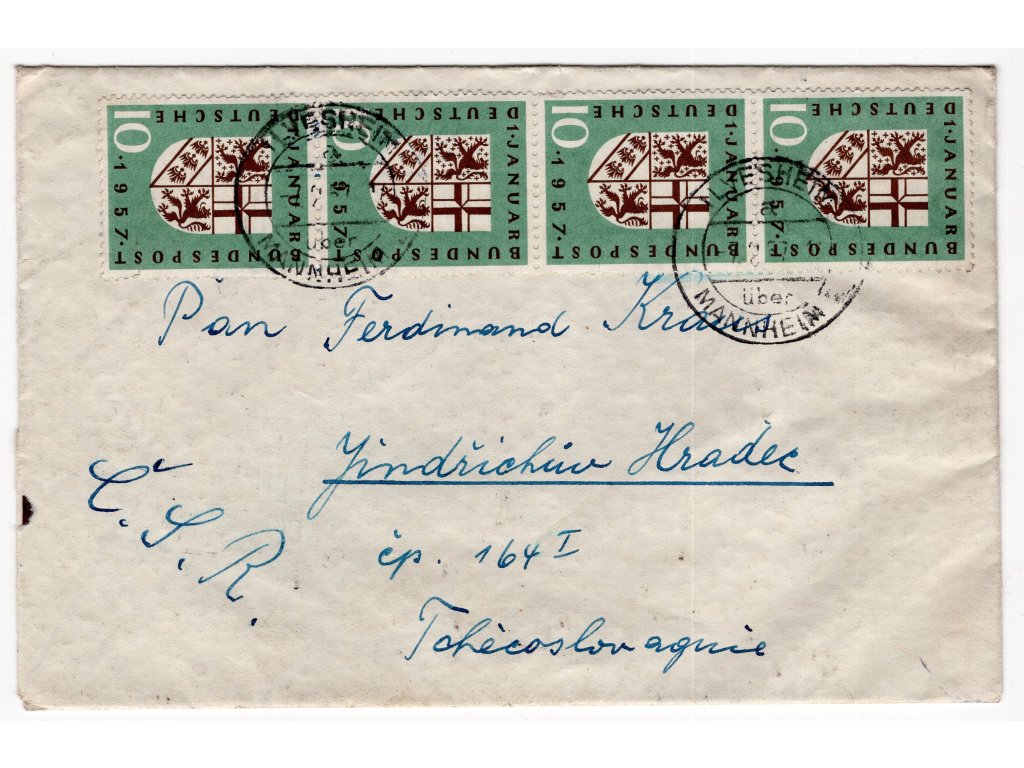 10 DEUTSCHE BUNDESPOST 1·JANUAR·1957·
10 DEUTSCHE BUNDESPOST 1·JANUAR·1957·
10 DEUTSCHE BUNDESPOST 1·JANUAR·1957·
10 DEUTSCHE BUNDESPOST 1·JANUAR·1957·
ILVESHEIM
a
über
MANNHEIM
ILVESHEIM
a
über
MANNHEIM
Pan Ferdinand
Jindřichúv Hradec
Č. S. R.
čp. 164 I
Tchécoslovaquie